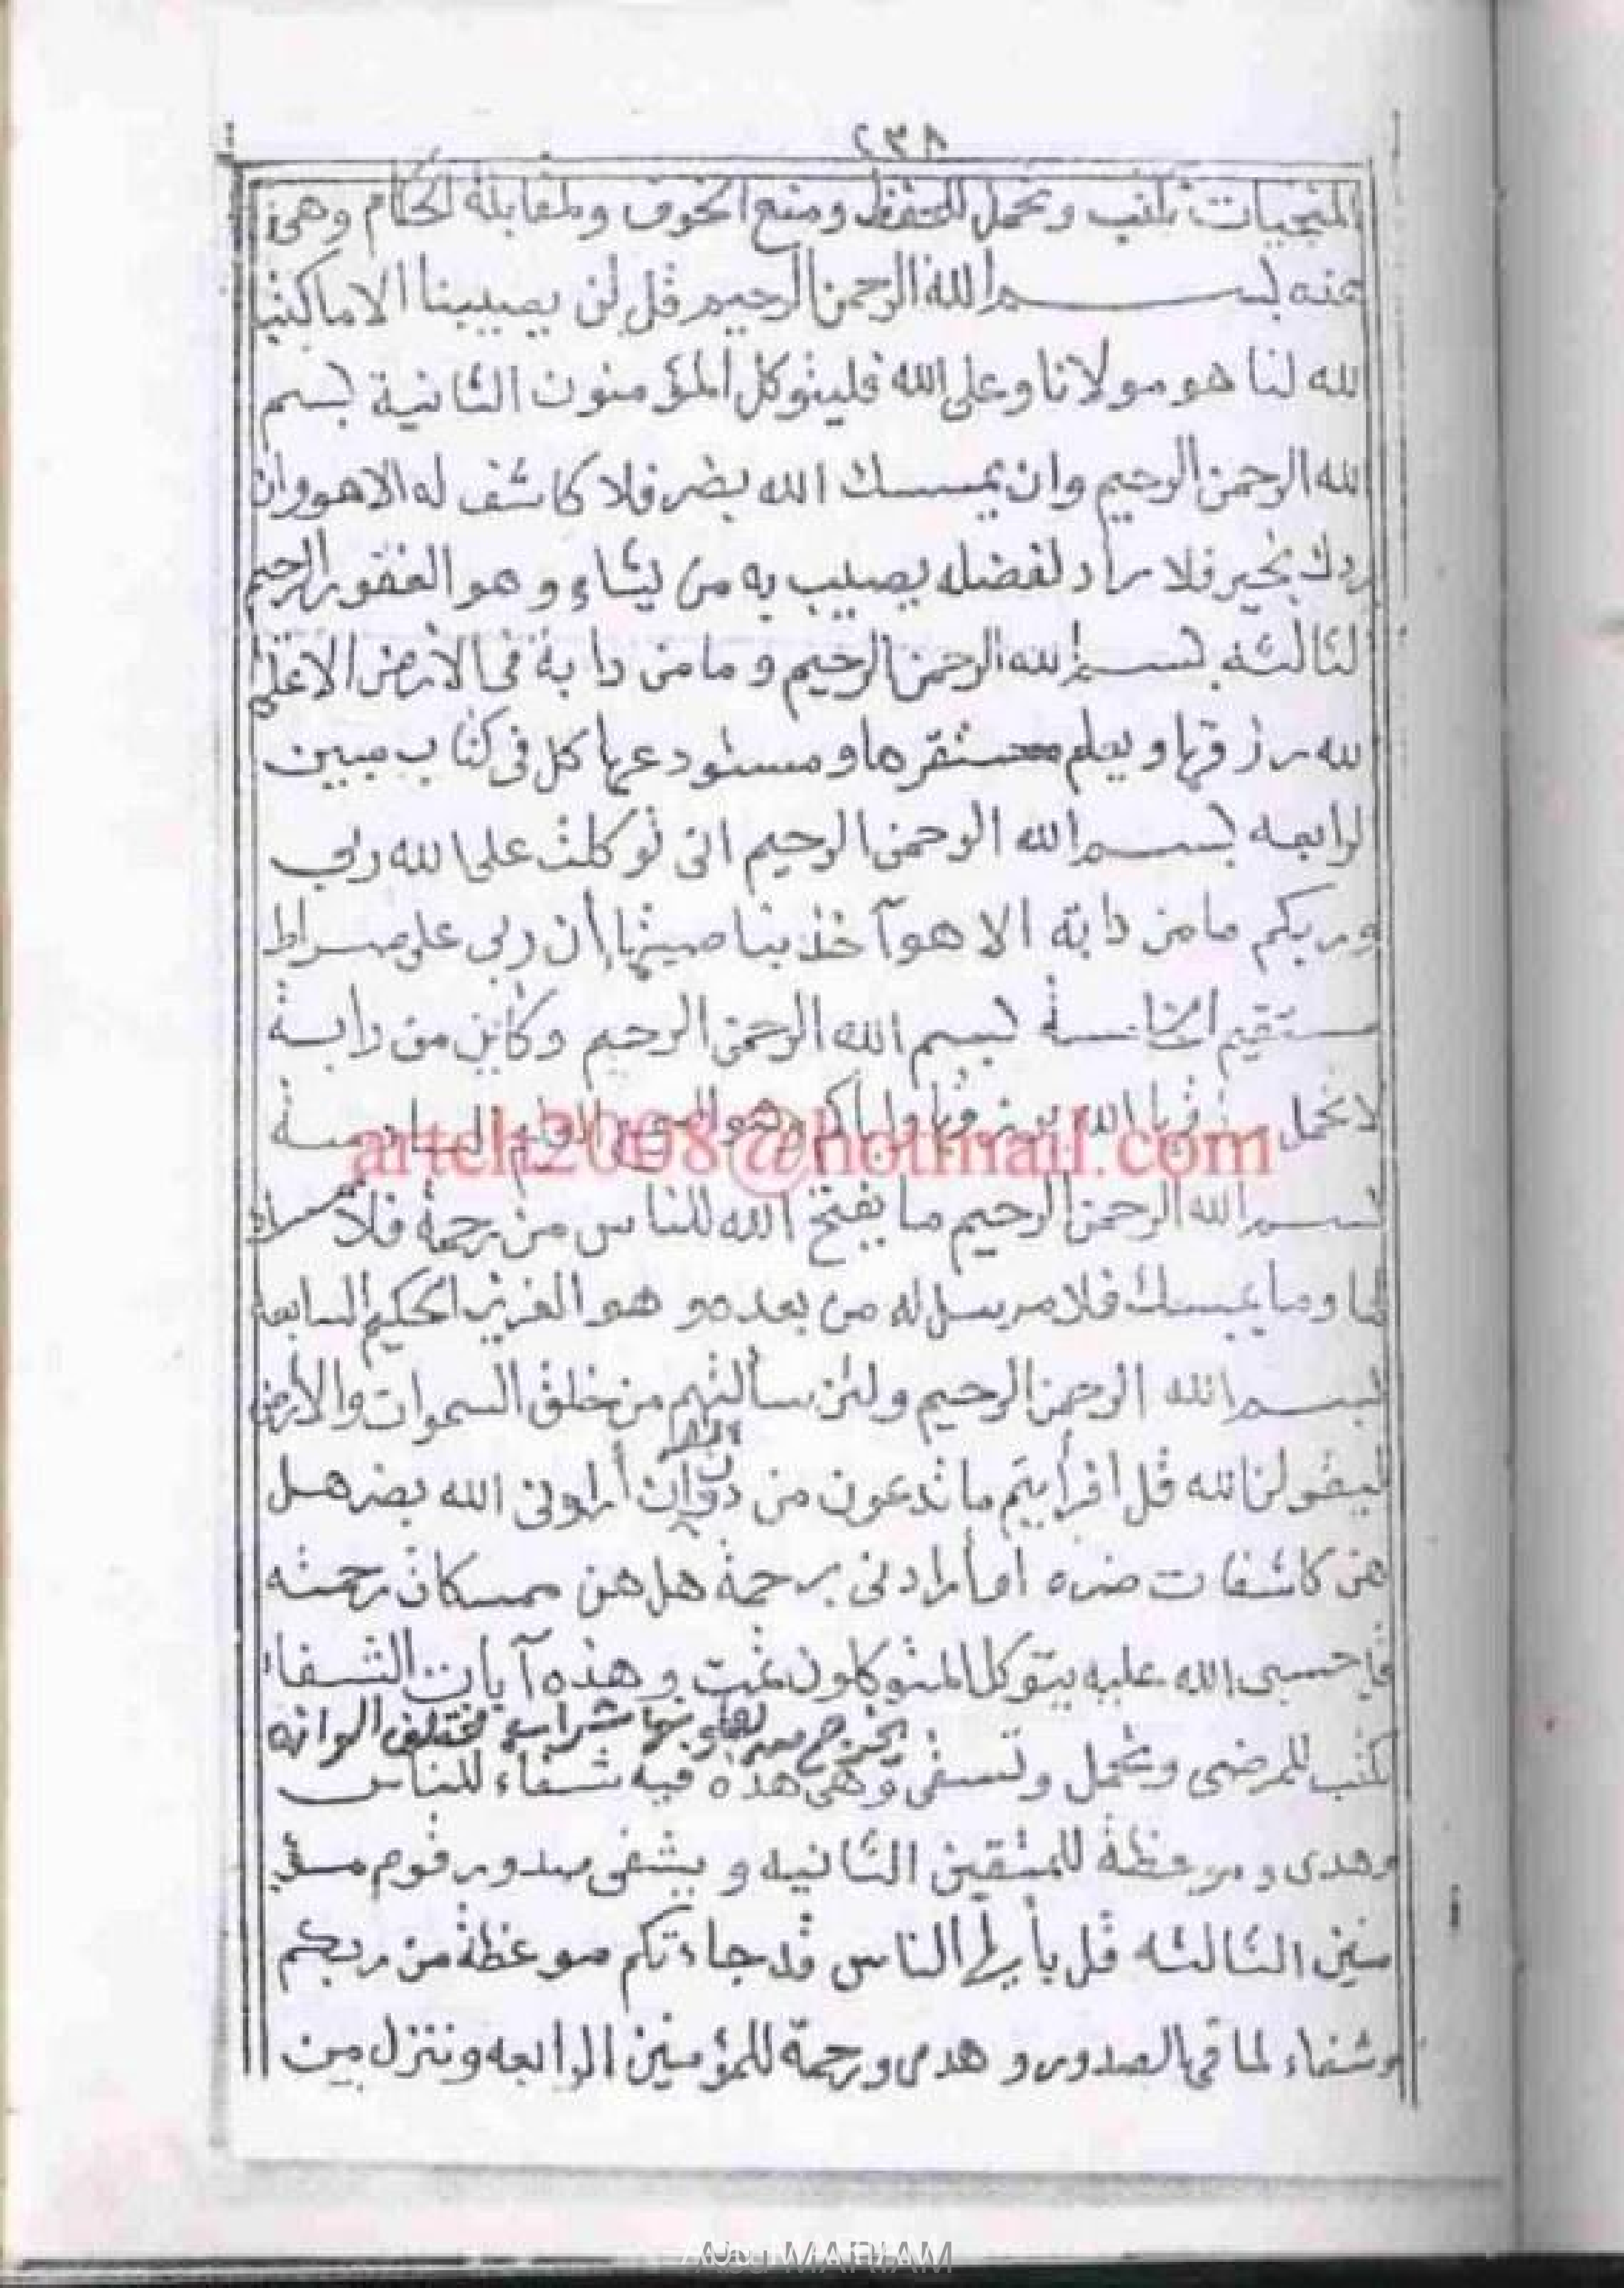 ٢٣٨
المنجيات تكتب وتحمل للحفظ ومنع الخوف ولمقابلة الحكام وهى
هذه بسم الله الرحمن الرحيم قل لن يصيبنا الا ما كتب
لله لنا هو مولانا وعلى الله فليتوكل المؤمنون الثانية بسم
لله الرحمن الرحيم وان يمسسك الله بضر فلا كاشف له الا هو وان
ردك بخير فلا راد لفضله يصيب به من يشاء وهو الغفور الرحيم
لثالثه بسم الله الرحمن الرحيم وما من دابة فى الارض الا على
لله رزقها ويعلم مستقرها ومستودعها كل فى كتاب مبين
لرابعه بسم الله الرحمن الرحيم انى توكلت على الله ربى
وربكم ما من دابة الا هو آخذ بناصيتها أن ربى على صراط
مستقيم الخامسة بسم الله الرحمن الرحيم وكأين من دابة
لا تحمل رزقها الله يرزقها واياكم وهو السميع العليم السادسة
artch2008@hotmail.com
بسم الله الرحمن الرحيم ما يفتح الله للناس من رحمة فلا
لها وما يمسك فلا مرسل له من بعده وهو العزيز الحكيم السابعة
بسم الله الرحمن الرحيم ولئن سألتهم من خلق السموات والأرض
ليقولن الله قل افرأيتم ما تدعون من دون الله أن أرادنى الله بضر هل
هن كاشفات ضره أو أرادنى برحمة هل هن ممسكات رحمته
قل حسبى الله عليه يتوكل المتوكلون تمت وهذه آيات الشفاء
يخرج من بطونها شراب مختلف الوانه
تكتب للمرضى وتحمل وتسقى وهى هذه فيه شفاء للناس
وهدى وموعظة للمتقين الثانيه ويشفى صدور قوم مؤ
منين الثالثه قل يأيها الناس قد جاءتكم موعظة من ربكم
وشفاء لما فى الصدور وهدى ورحمة للمؤمنين الرابعه وننزل من
Abu MARIAM